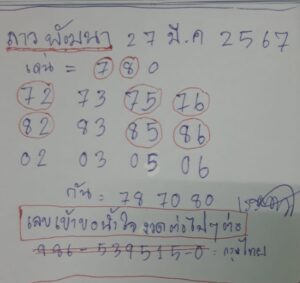 ลาว พัฒนา 27 มี.ค 2567
เด่น = 7 8 0
72 73 75 76
82 83 85 86
02 03 05 06
กัน = 78 70 80
เลขเข้าขอน้ำใจ งวดต่อไปๆต่อ
986-539515-0 : กรุงไทย